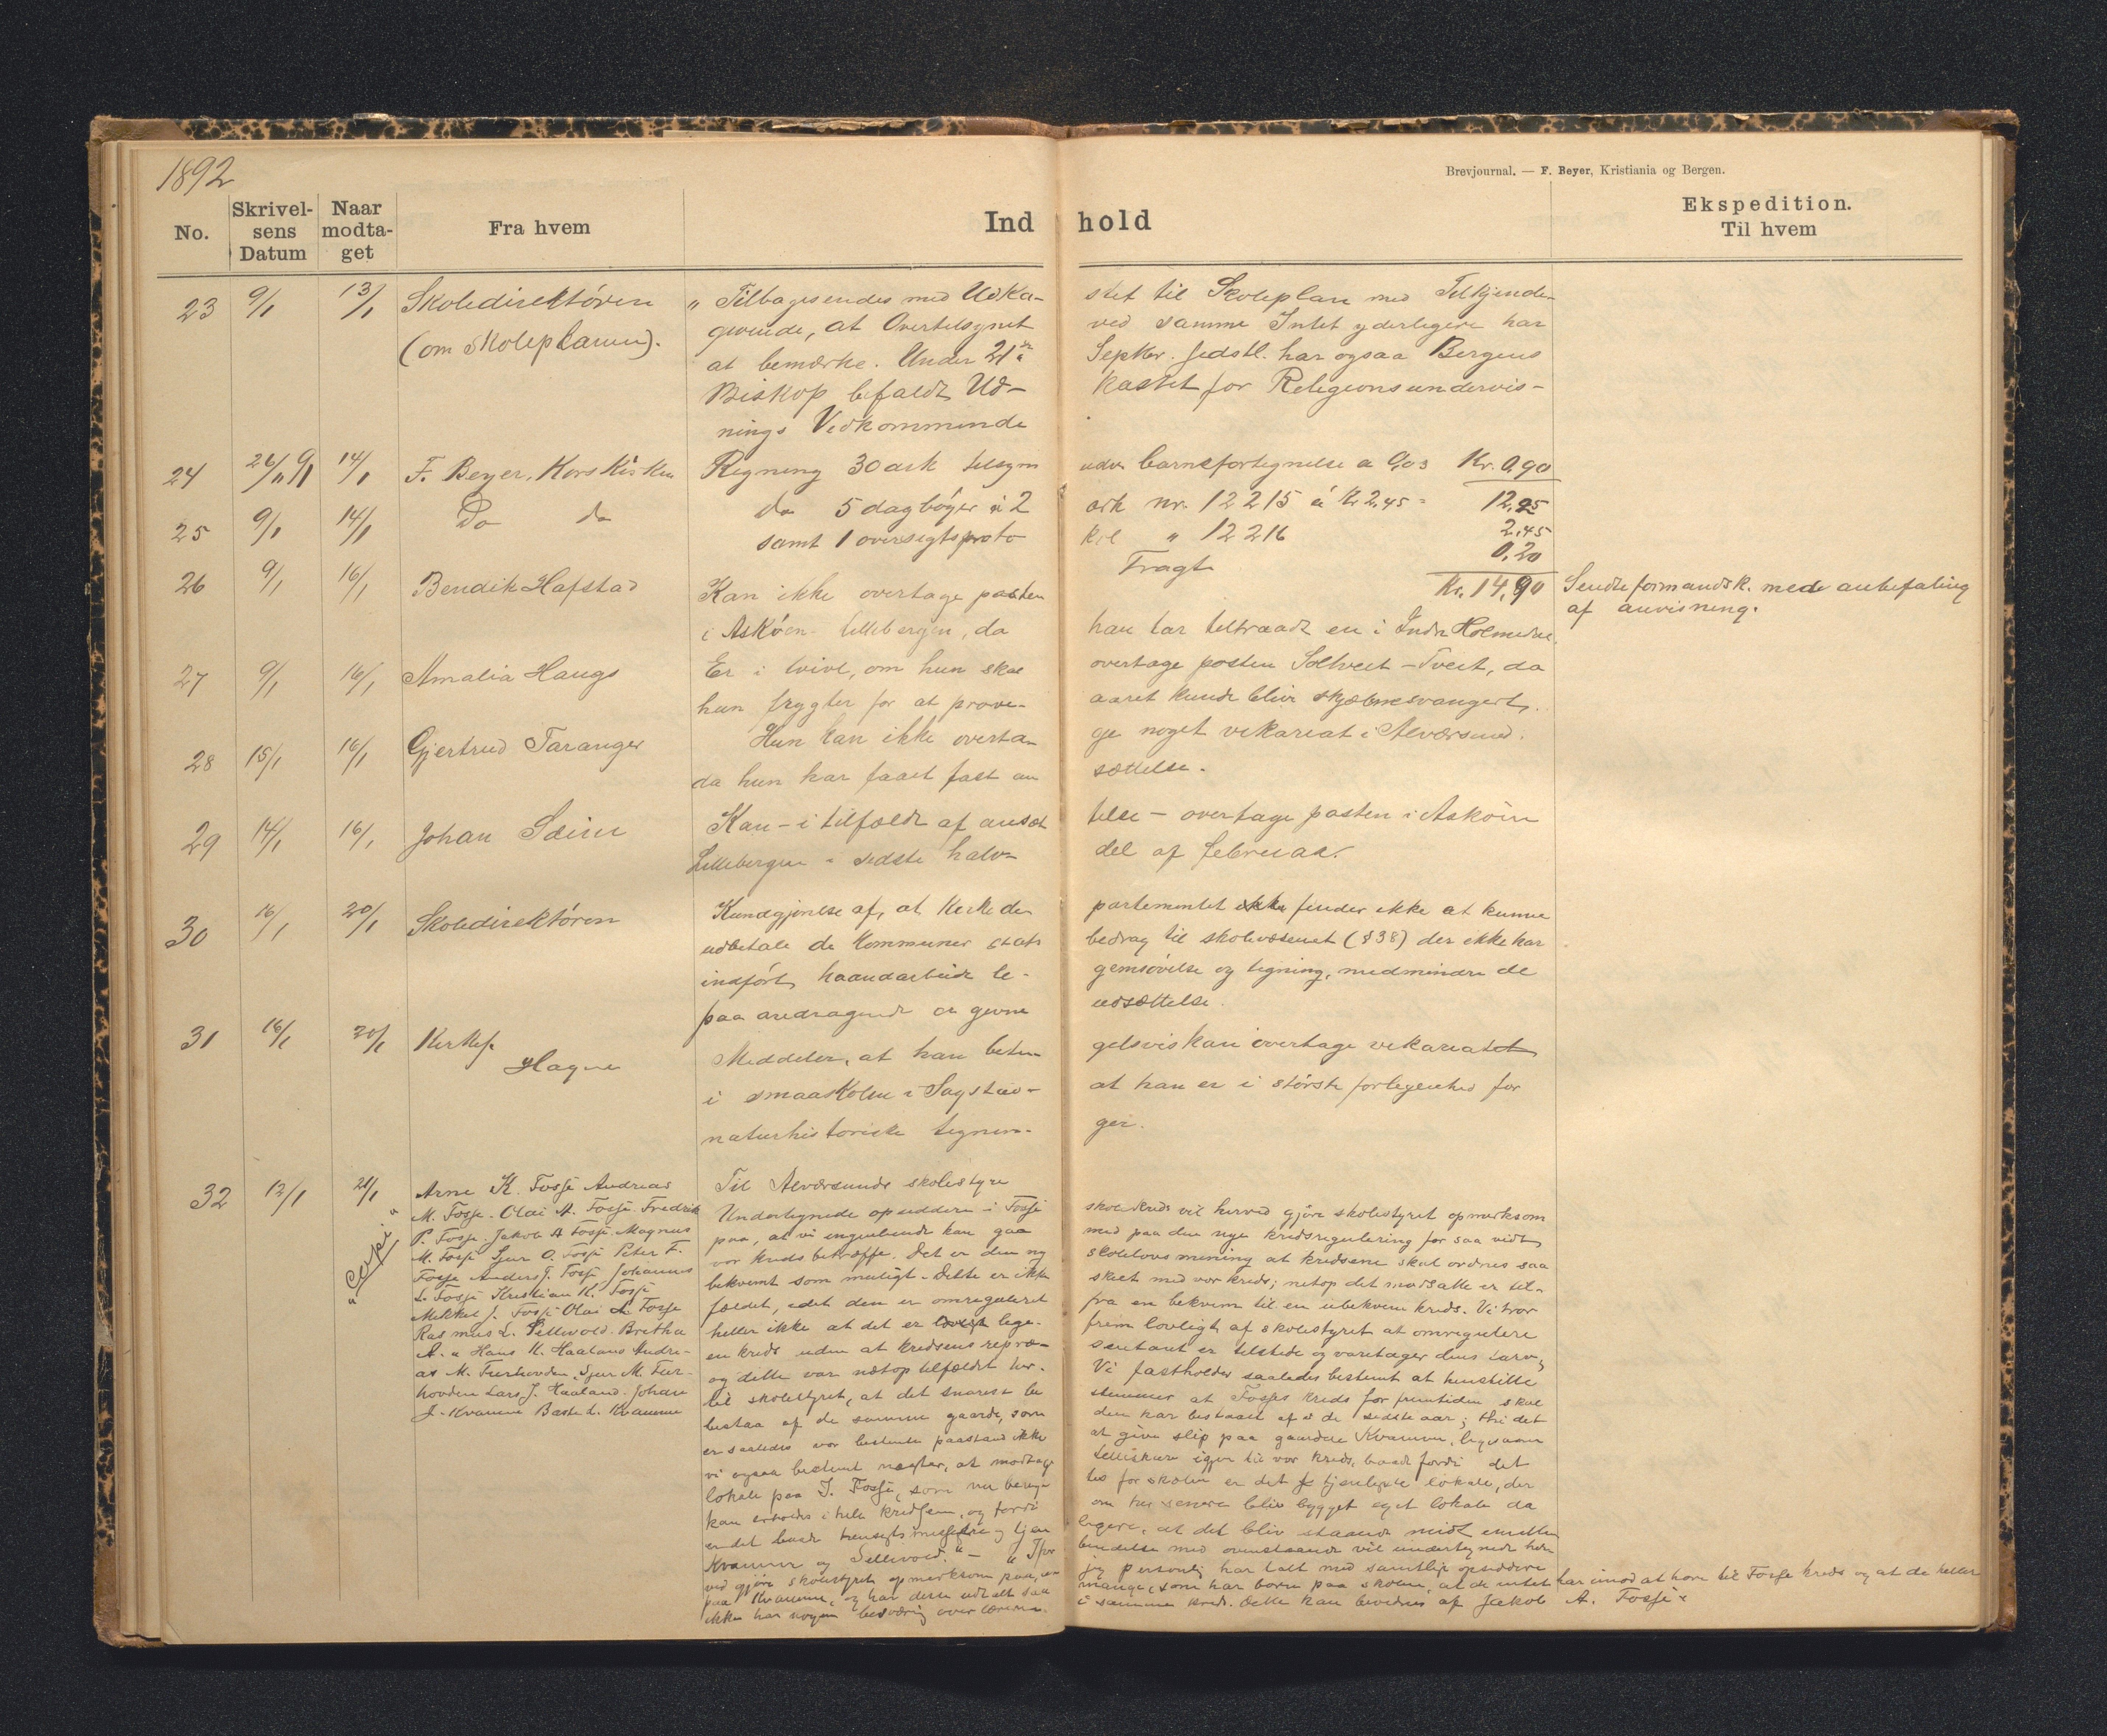 1892
Brevjournal. — F. Beyer, Kristiania og Bergen.
No. Skrivelsens Datum Naar modtaget Fra hvem Ind hold Ekspedition. Til hvem
23 9/1 13/1 Skoledirektören „Tilbagesendes med Udka- stet til Skoleplan med Tilkjende-
(om skoleplanen). givende, at Overtilsynet ved samme Intet yderligere har
at bemærke. Under 21de Septbr. sidstl. har ogsaa Bergens
Biskop befaldt Ud- kastet for Religionsundervis-
nings Vedkommende
24 14/1 F. Beyer, Korskirken Regning 30 ark tilsyn barnefortegnelse a 0,03 Kr. 0,90
25 9/1 14/1 Do do do 5 dagbøger à 2 ark nr. 12215 á Kr 2,45 = 12,25
samt 1 oversigtsproto kol „ 12216 2,45
Fragt 0,20
Kr. 14,90
26 9/1 16/1 Bendik Hafstad Kan ikke overtage posten Sendte formandsk. med anbefaling
af anvisning.
i Askøen-Lillebergen, da han har tiltraadt en i Indre Holmedal.
27 9/1 16/1 Amalia Haugs Er i tvivl, om hun skal overtage posten Soltveit-Tveit, da
hun frygter for at prøve- aaret kunde blive skjæbnesvangert.
28 15/1 16/1 Gjertrud Taranger Hun kan ikke overta- ge noget vikariat i Alversund.
da hun har faaet fast an sættelse.
29 14/1 16/1 Johan Seim Kan - i tilfælde af ansæt telse - overtage posten i Askøen
Lillebergen i sidste halv- del af februar.
30 16/1 20/1 Skoledirektören Kundgjørelse af, at Kirkede partementet finder ikke at kunne
udbetale de kommuner stats bedrag til skolevæsenet (§38) der ikke har
indført haandarbeide le- gemsøvelse og tegning, medmindre de
paa andragende er givne udsættelse.
31 16/1 20/1 Kirkes. Hagne Meddeler, at han betin- gelsvis kan overtage vikariatet
i smaaskolen i Sagstad- at han er i største forlegenhed for
naturhistoriske tegnin- ger.
32 12/1 21/1 Arne K. Fosse Andreas Til Alversunds skolestyre
„Copi“
M. Fosse. Olai A. Fosse. Fredrik Undertegnede opsiddere i Fosse skolekreds vil herved gjøre skolestyret opmerksom
P. Fosse. Jakob A Fosse. Magnus paa, at vi ingenlunde kan gaa med paa den nye kredsregulering for saa vidt
M. Fosse Sjur O. Fosse Peter F. vor kreds betræffe. Det er den ny skolelovs mening at kredsene skal ordnes saa
Fosse Anders J. Fosse Johannes bekvemt som muligt. Dette er ikke skeet med vor kreds; netop det modsatte er til-
L. Fosse Kristian K. Fosse fældet, idet den er omreguleret fra en bekvem til en ubekvem kreds. Vi tror
Mikkel J. Fosse Olai L. Fosse heller ikke at det er frem lovligt af skolestyret at omregulere
Rasmus L. Sellevold. Britha en kreds uden at kredsens repræ- sentant er tilstede og varetager dens tarv,
A. „ Hans K. Haaland Andre- og dette var netop tilfældet her. Vi fastholder saaledes bestemt at henstille
as M. Furhovden, Sjur M. Fur- til skolestyret, at det snarest be stemmer at Fosses kreds for fremtiden skal
hovden Lars J. Haaland. Johan bestaa af de samme gaarde, som den har bestaaet af i de sidste aar; thi det
J. Kvamme Baste L. Kvamme er saaledes vor bestemte paastand ikke at give slip paa gaardene Kvamme, ligesaam
vi ogsaa bestemt negter, at modtage igjen til vor kreds, baade fordi det
lokale paa J. Fosse, som nu benyt- tes for skolen er det tjenligste lokale, der
kan erholdes i hele kredsen, og fordi om her senere bliv bygget eget lokale da
er det baade og tjen- ligere, at det bliv staaende midt imellem
Kvamme og Sellevold.“ — „I for- bindelse med ovenstaaende vil undertegnede her-
ved gjøre skolestyret opmerksom paa, at jeg personlig har talt med samtlige opsiddere
paa Kvamme, og har disse udtalt saa mange, som har børn paa skolen, at de intet har imod at høre til Fosse kreds og at de heller
ikke har nogen besværing over lærerne i samme kreds. Dette kan bevidnes af Jakob A. Fosse.“